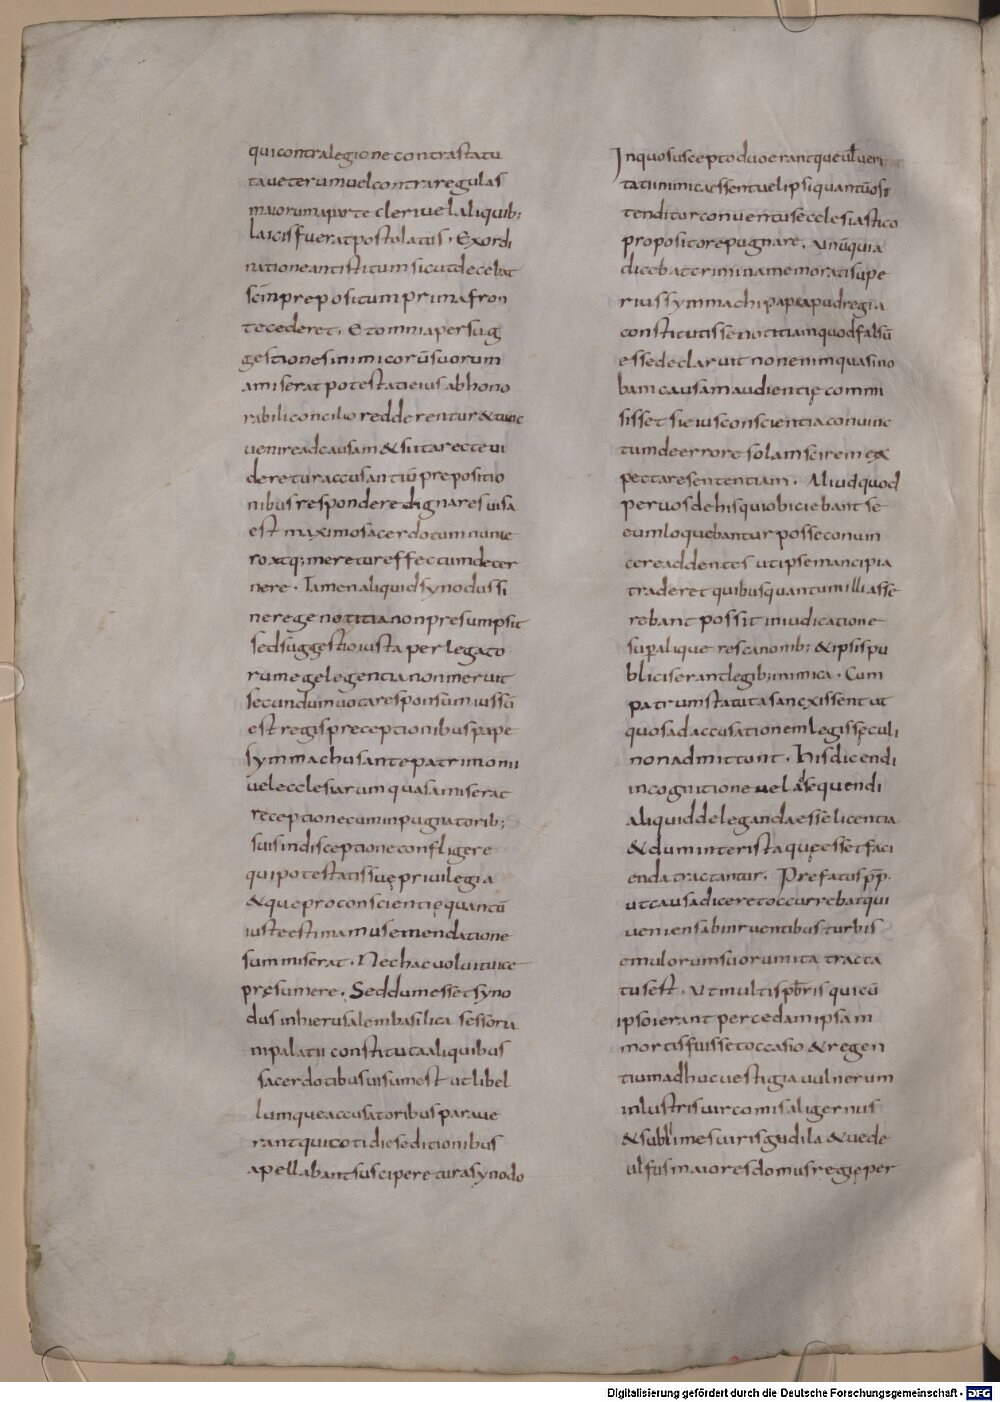 qui contra legione contra statu
ta veterum vel contra regulas
maiorum aparte cleri vel aliquib;
laicis fuerat postulatus. Exordi
natione antistitum sicut decebat
scm prepositum prima fron
te cederet. Et omnia per sug
gestiones inimicorū suorum
amiserat potestati eius ab hono
rabili concilio redderentur & tunc
venire ad causam & si ita recte vi
deretur accusantiū prepositio
nibus respondere dignares visa
est maximo sacerdotum nume
ro atq; meretur effectum decer
nere. Tamen aliquid synodus si
ne rege notitia non presumpsit
sed suggestio iusta per legato
rum egelegentia non meruit
secundum vota responsum iussū
est regis preceptionibus pape
symmachus ante patrimonii
vel ecclesiarum quas amiserat
receptione cum inpugnatorib;
suis in disceptione confligere
qui potestatis suę privilegia
& que pro conscientię quantū
iuste estimamus emendatione
summiserat. Nec hac voluit vice
pręsumere. Sed dum esset syno
dus in hierusalem basilica sessoru
ni palatii constituta aliquibus
sacerdotibus visum est ut libel
lum que accusatoribus parave
rant qui cotidie seditionibus
apellabant susciperetur a synodo
In quo suscepto duo erant que ul veri
tati inimica essent vel ipsi quantū ost
tenditor conventus ecclesiastico
proposito repugnare. Unū quia
dicebat crimina memorati supe
rius symmachi papę apud regia
constitutisse notitiam quod falsū
esse declaruit non enim quasi no
bam causam audientię commi
sisset si eius conscientia convinc
tum de errore solam sciremex
pectare sententiam. Aliud quod
per vos de his qui obiciebant se
eum loquebantur posse convin
cere addentes ut ipse mancipia
traderet quibus quantum illi asse
rebant possit in iudicatione
suparalique res canonib; & ipsis pu
blicis erant legib; inimica. Cum
patrum statuta sancxissent ut
quos ad accusationem legis sęculi
non admittunt. his dicendi
in cognitione vel adsequendi
aliquid deleganda esse licentia
& dum inter ista quę esset faci
enda tractantur. Prefatus p̄p̄.
ut causa diceret occurrebat qui
veniens ab inruentibus turbis
emulorum suorum ita tracta
tus est. Ut multis p̄b̄ris qui cū
ipso ierant per cedam ipsam
mortis fuisset occasio & regen
tium adhuc vestigia vulnerum
inlustris vir comis aligernus
& sublimes viris gudila & vede
ulfus maiores domus regię per
Digitalisierung gefördert durch die Deutsche Forschungsgemeinschaft - DFG